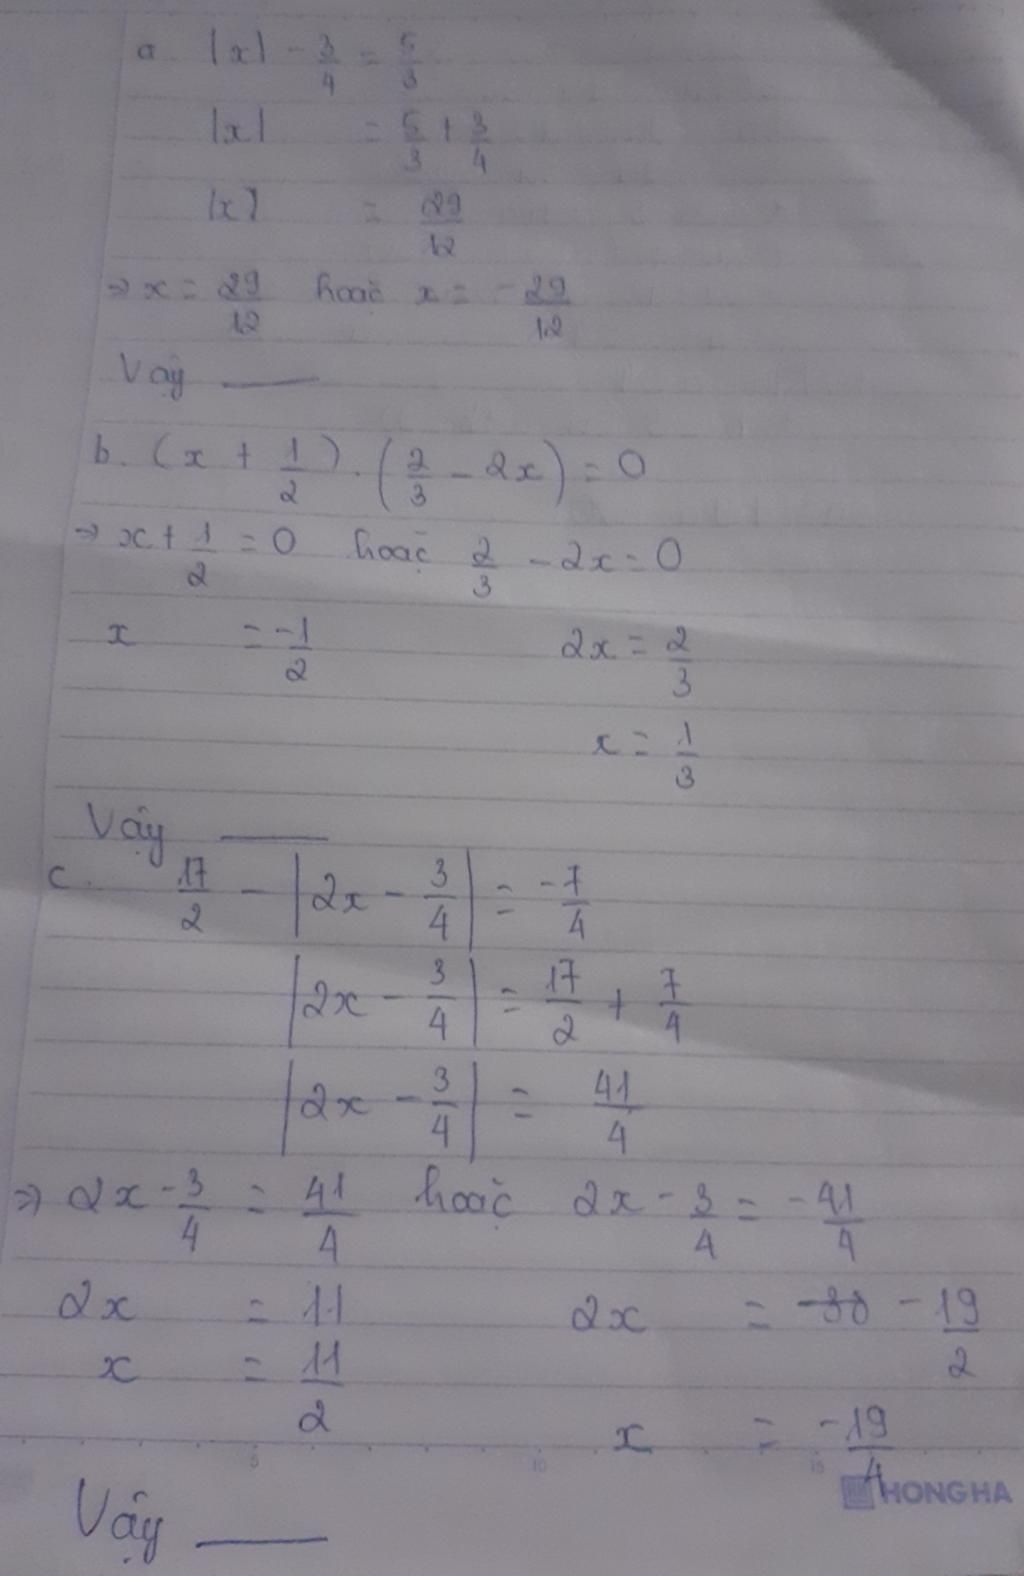 a. |x| - 3/4 = 5/3
|x| = 5/3 + 3/4
|x| = 29/12
=> x = 29/12 hoặc x = -29/12
Vậy ___
b. (x + 1/2) . (2/3 - 2x) = 0
=> x + 1/2 = 0 hoặc 2/3 - 2x = 0
x = -1/2 2x = 2/3
x = 1/3
Vậy ___
c. 17/2 - |2x - 3/4| = -7/4
|2x - 3/4| = 17/2 + 7/4
|2x - 3/4| = 41/4
=> 2x - 3/4 = 41/4 hoặc 2x - 3/4 = -41/4
2x = 11 2x = -19/2
x = 11/2 x = -19/4
5 10 15
HONG HA
Vậy ___